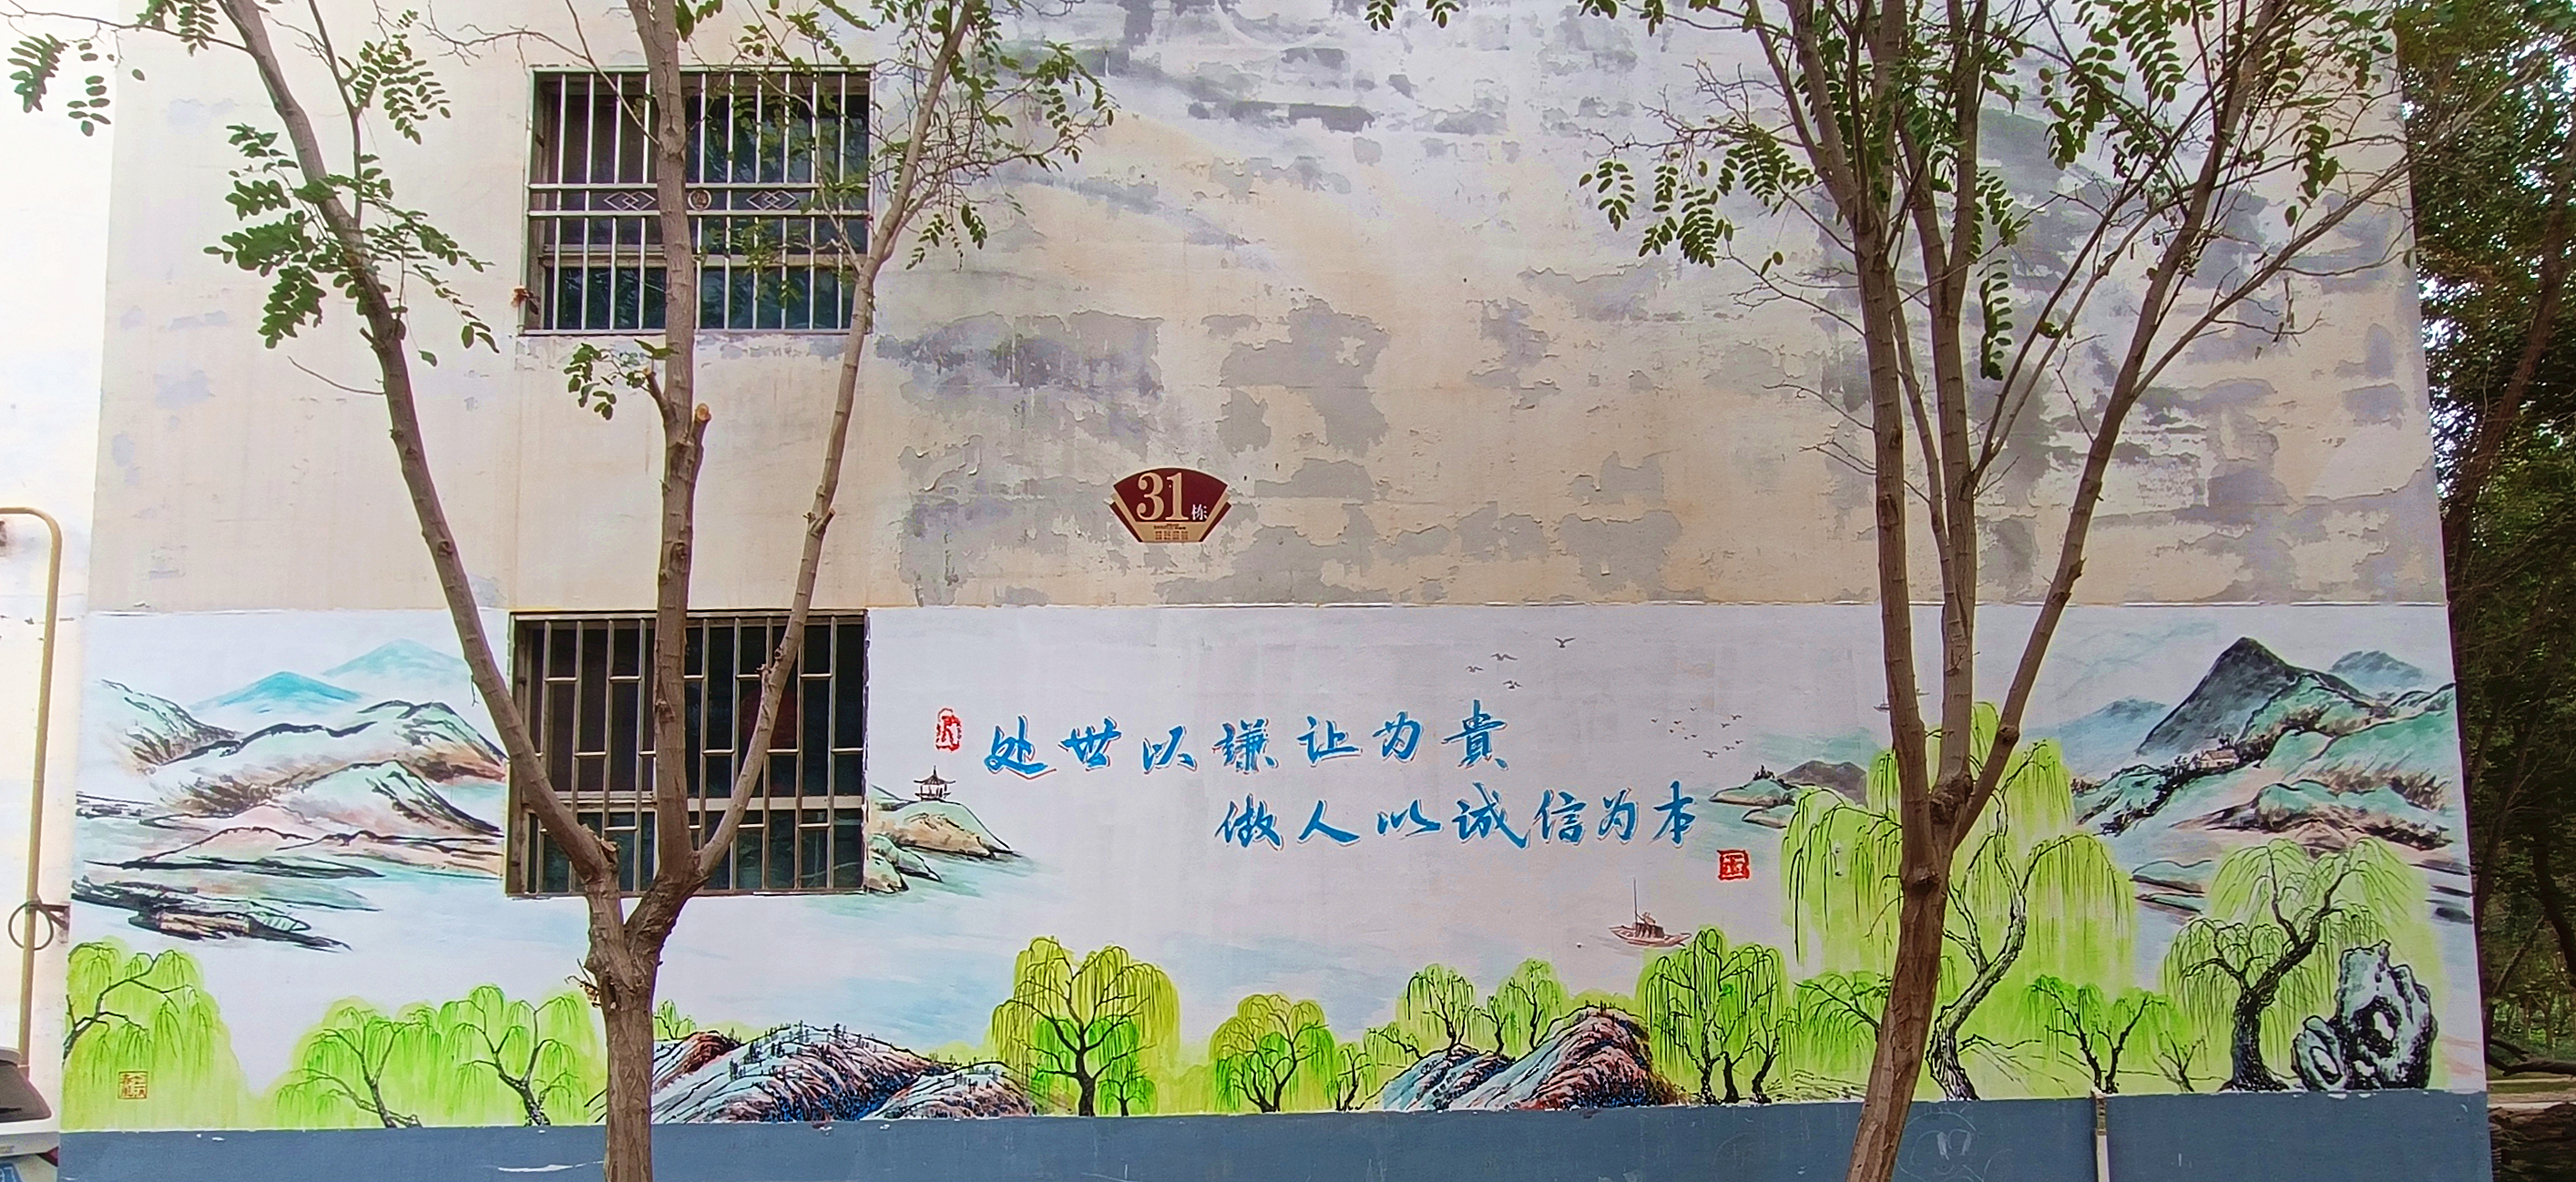 31栋
处世以谦让为貴
做人以诚信为本